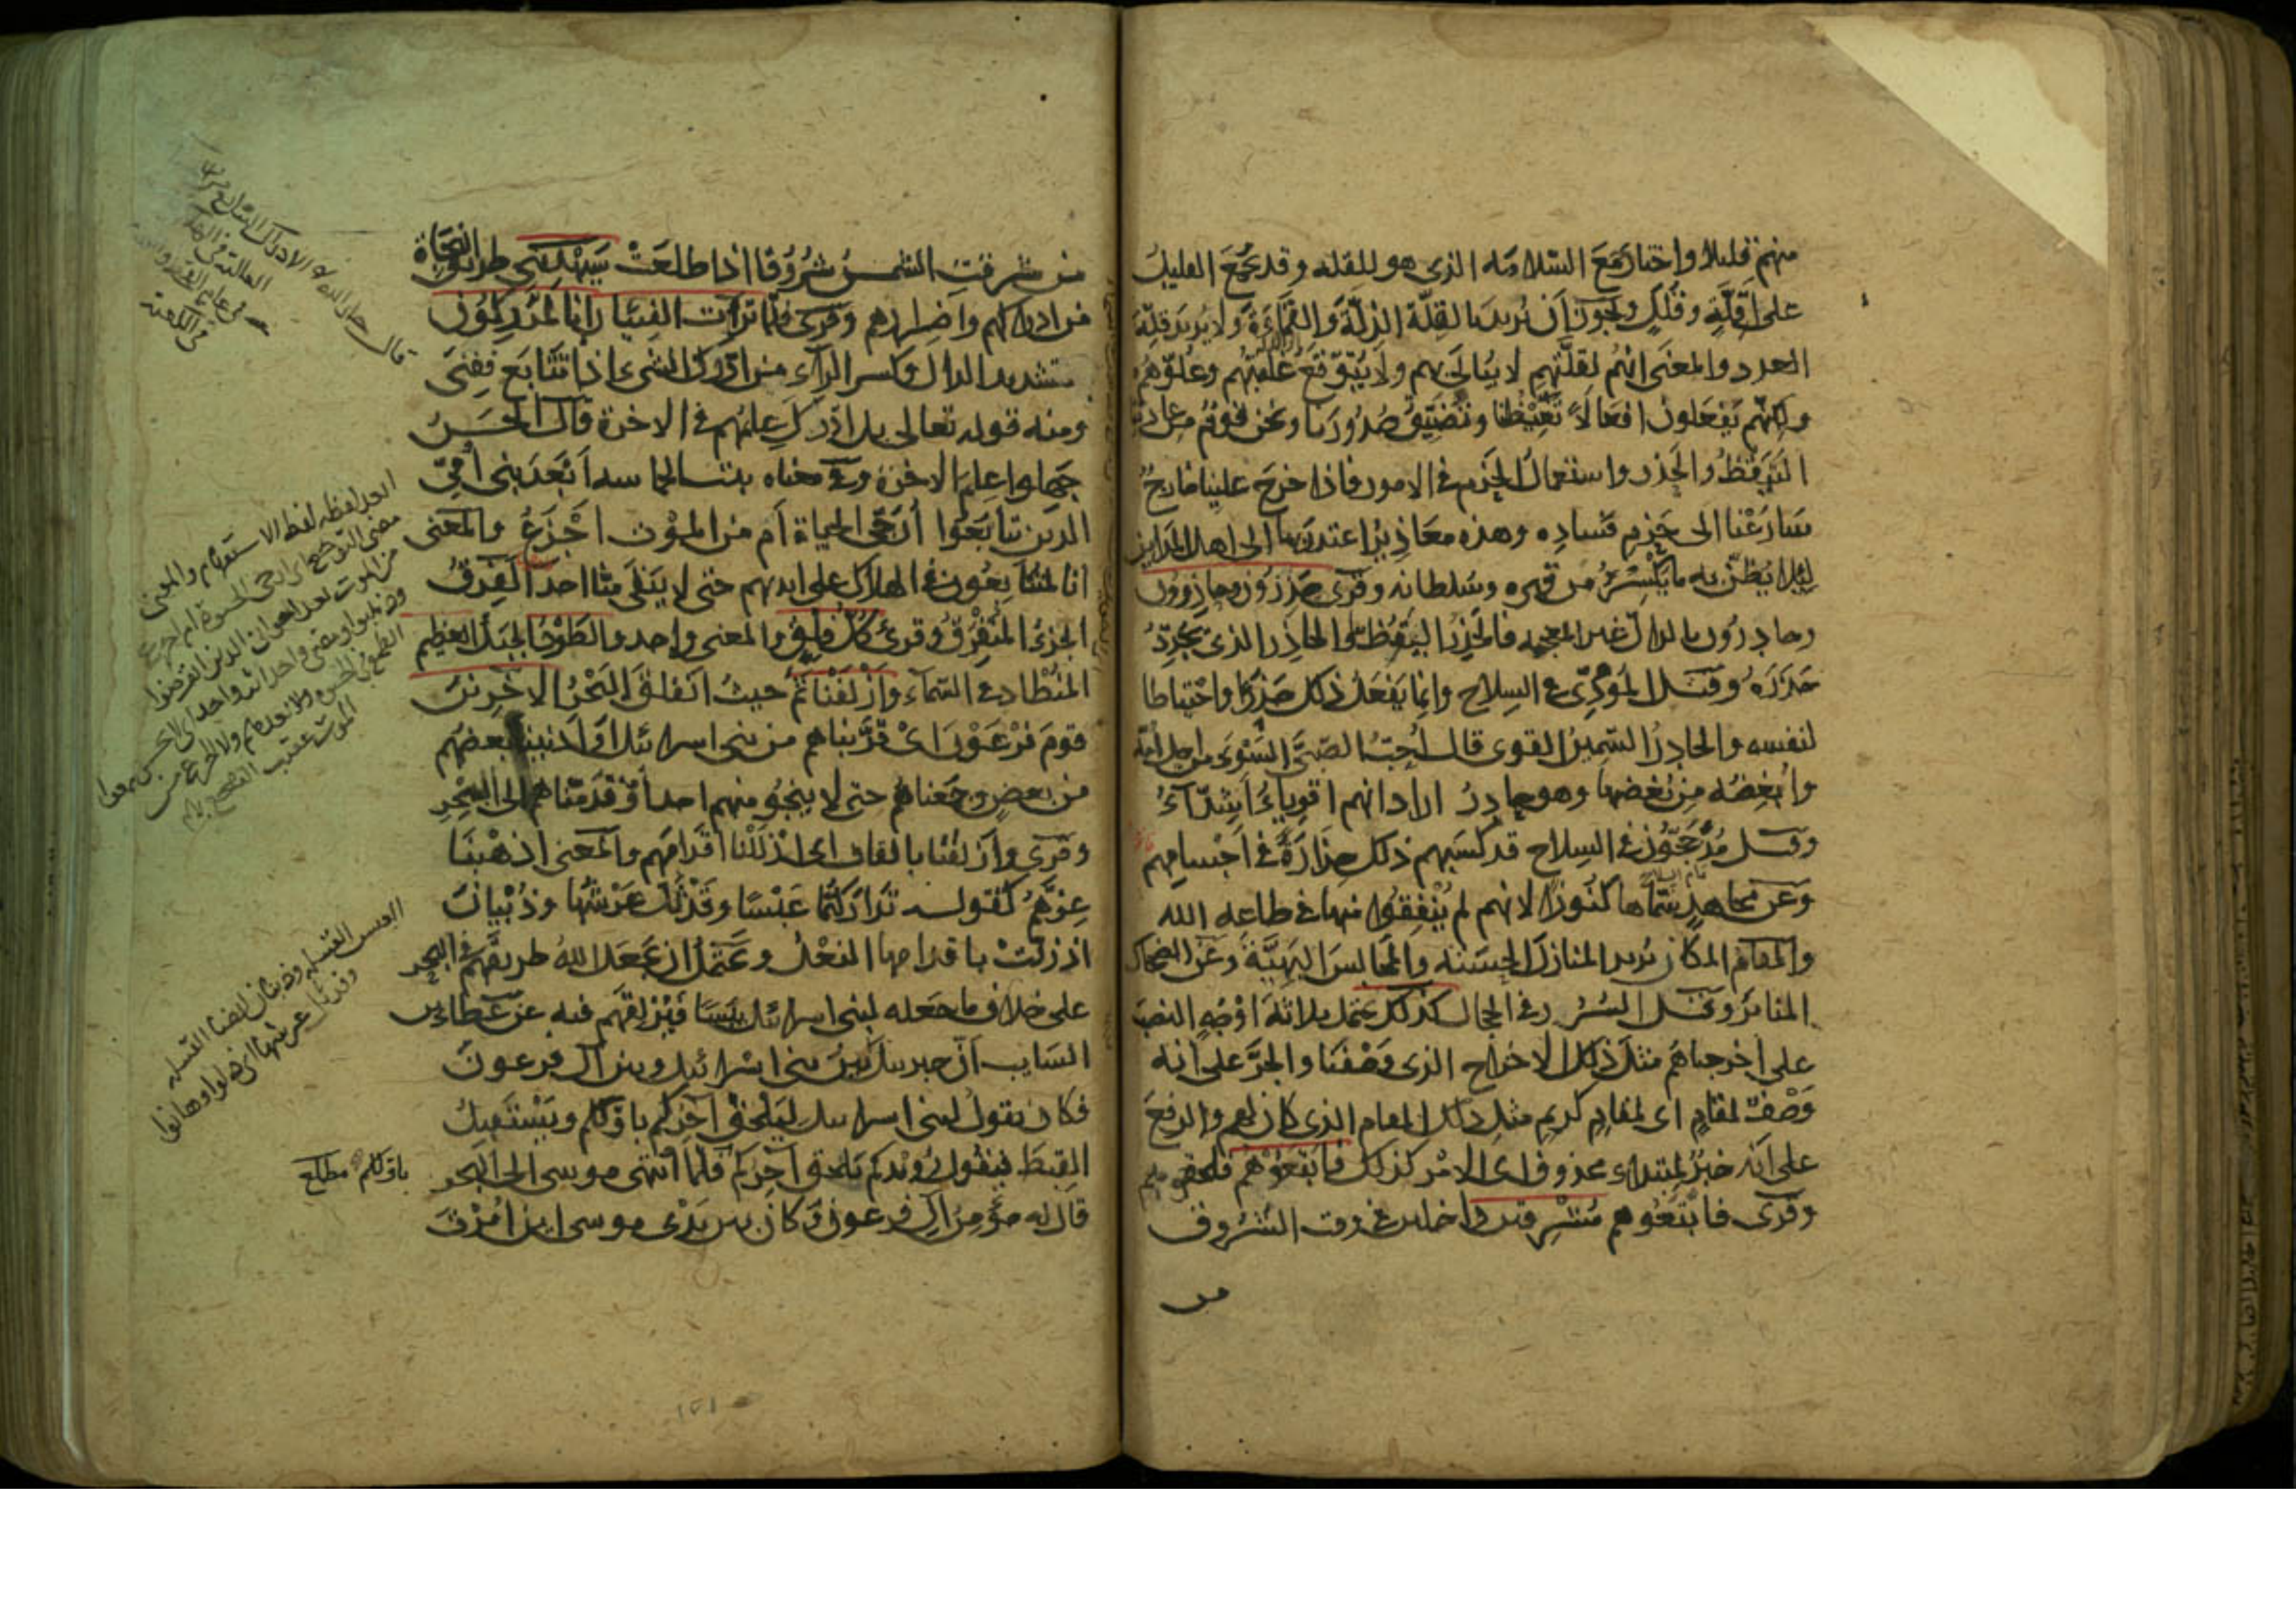 منهم قليلا واختار جمع السلامة الذى هو للقلة وقد يجمع القليل
على اقلة وقلل ويجوز ان يريد بالقلة الذلة والقماءة ولا يريد قلة
العدد والمعنى انهم لقلتهم لا يبالى بهم ولا يتوقع غلبتهم وعلوهم
ولكنهم يفعلون افعالا تغيظنا وتضيق صدورنا ونحن قوم من عادتنا
التيقظ والحذر واستعمال الحزم فى الامور فاذا خرج علينا خارج
سارعنا الى حسم فساده وهذه معاذير اعتذر بها الى اهل المداين
ليلا يظن به ما يكسر من قهره وسلطانه وقرى حذرون وحاذرون
وحادرون بالدال غير المعجمة فالحذر اليقظ والحاذر الذى يجدد
حذره وقيل المؤدى فى السلاح وانما يفعل ذلك حذرا واحتياطا
لنفسه والحادر السمين القوى قال احب الصبى السوء من اجل امه
وابغضه من بغضها وهو حادر اراد انهم اقوياء اشداء
وقيل مدججون فى السلاح قد كسبهم ذلك حدارة فى اجسامهم
وعن مجاهد سماها كنوزا لانهم لم ينفقوا منها فى طاعة الله
والمقام المكان يريد المنازل الحسنة والمجالس البهية وعن الضحاك
المنابر وقيل السرر فى الحجال كذلك يحتمل ثلاثة اوجه النصب
على اخرجناهم مثل ذلك الاخراج الذى وصفنا والجر على انه
وصف لمقام اى لمقام كريم مثل ذلك المقام الذى كان لهم والرفع
على انه خبر لمبتداء محذوف اى الامر كذلك فاتبعوهم فلحقوهم
وقرى فاتبعوهم مشرقين داخلين فى وقت الشروق
من
من شرقت الشمس شروقا اذا طلعت سيهدين طريق النجاة
من ادراكهم واضرارهم وقرى فلما تراءت الفئتان انا لمدركون
بتشديد الدال وكسر الراء من ادرك الشىء اذا تتابع ففنى
ومنه قوله تعالى بل ادرك علمهم فى الاخرة قال الحسن
جهلوا علم الاخرة وفى معناه بيت الحماسة ابعد بنى امى
الذين تتابعوا ارجى الحياة ام من الموت اجزع والمعنى
انا لمتتابعون فى الهلاك على ايديهم حتى لا يبقى منا احد الفرق
الجزء المتفرق وقرى كل فلق والمعنى واحد والطود الجبل العظيم
المنطاد فى السماء وازلفنا ثم حيث انفلق البحر الاخرين
قوم فرعون اى قربناهم من بنى اسرائيل او ادنينا بعضهم
من بعض وجمعناهم حتى لا ينجو منهم احد او قدمناهم الى البحر
وقرى وازلقنا بالقاف اى ازللنا اقدامهم والمعنى اذهبنا
عزهم كقوله تداركتما عبسا وقد ثل عرشها وذبيان
اذ زلت باقدامها النعل ويحتمل ان يجعل الله طريقهم فى البحر
على خلاف ما جعله لبنى اسرائيل يبسا فيزلقهم فيه عن عطاء بن
السايب ان جبريل بين بنى اسرائيل وبين ال فرعون
فكان يقول لبنى اسرائيل ليلحق اخركم باولكم ويستقبل
القبط فيقول رويدكم يلحق اخركم فلما انتهى موسى الى البحر
قال له مؤمن ال فرعون وكان بين يدى موسى اين امرت
قال جار الله الادراك التتابع
الحد لفظه لفظ الاستفهام والمعنى
العبس القبيلة وذبيان ايضا القبيلة
وقد ثل عرشها اى هلكوا وهانوا
باولكم مطلع